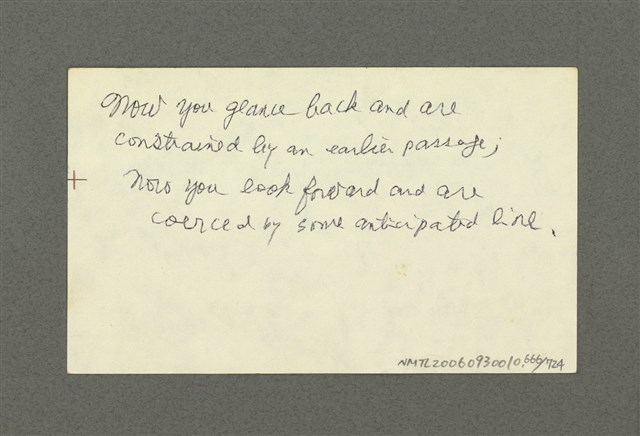 Now you glance back and are
constrained by an earlier passage;
Now you look forward and are
coerced by some anticipated line.
NMTL20060930010.666/724